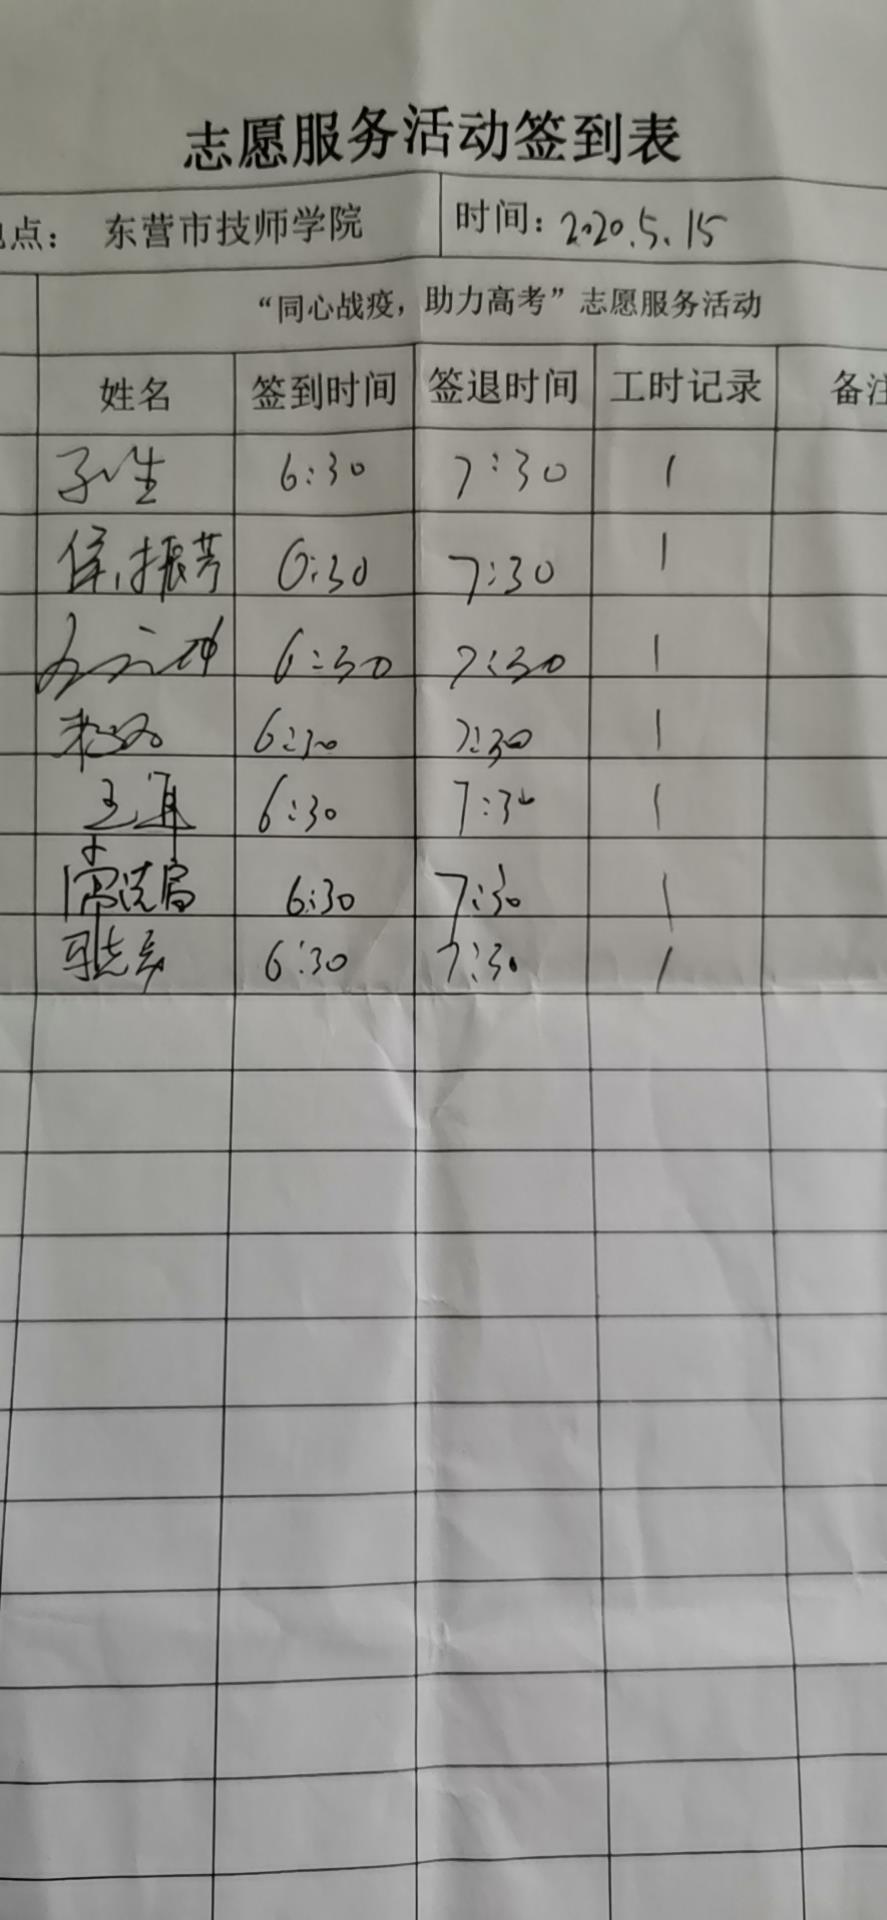 志愿服务活动签到表
地点： 东营市技师学院 时间：2020.5.15
“同心战疫，助力高考”志愿服务活动
姓名 签到时间 签退时间 工时记录 备注
6:30 7:30 1
侯振芳 6:30 7:30 1
6:30 7:30 1
6:30 7:30 1
6:30 7:30 1
6:30 7:30 1
6:30 7:30 1